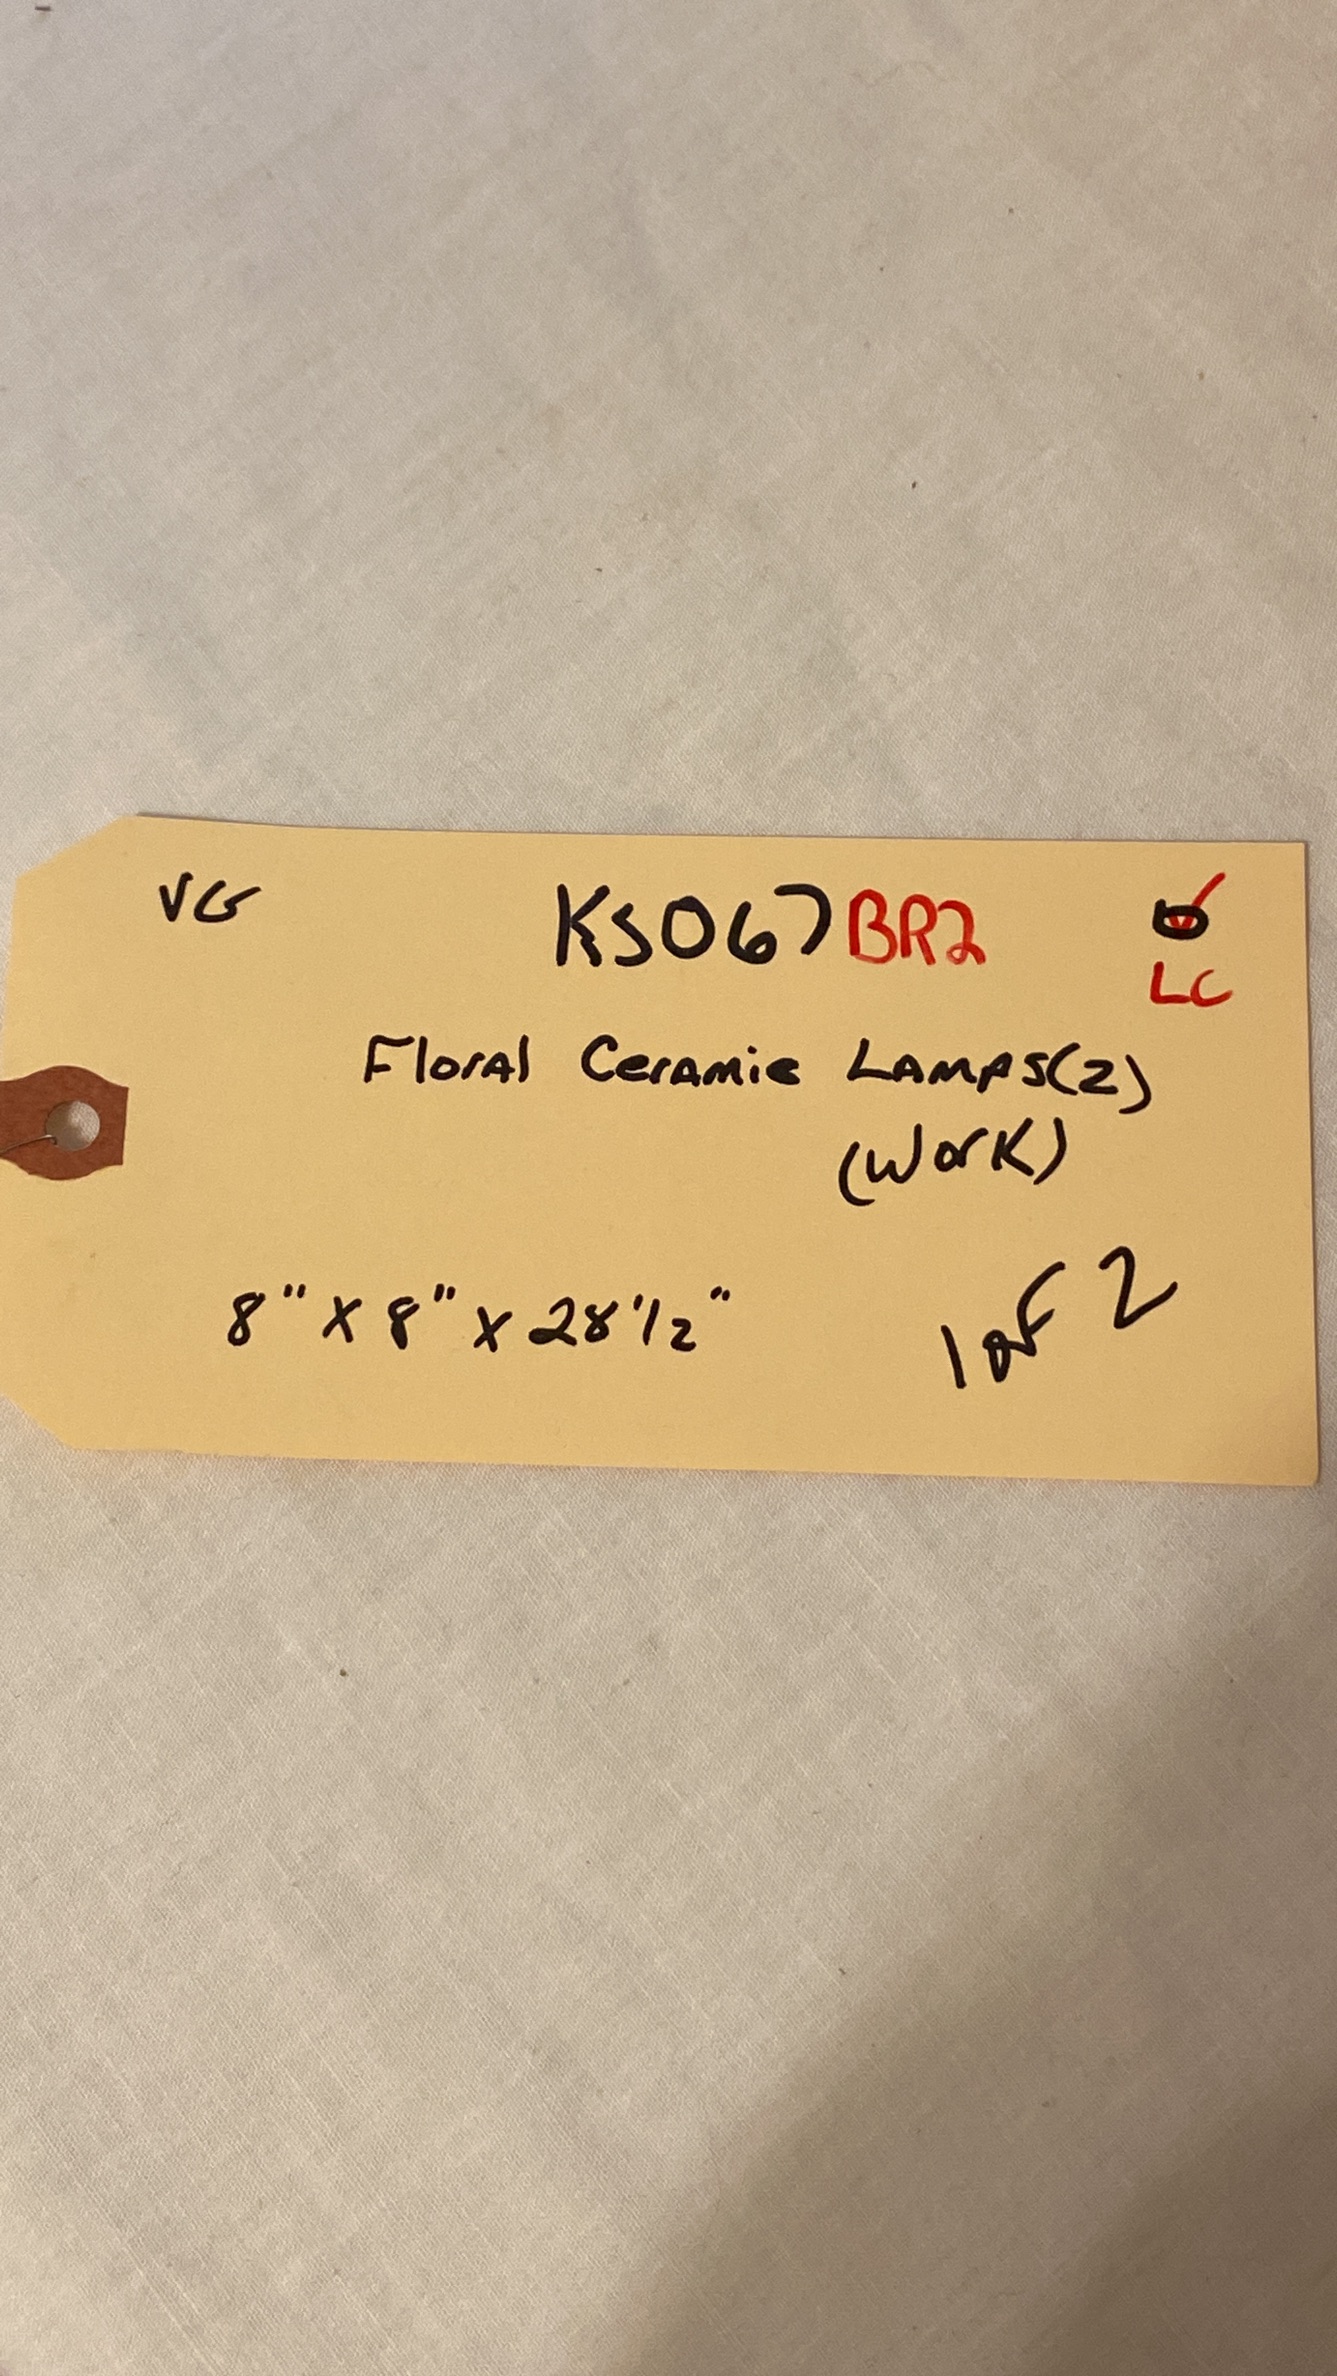 VG KS067BR2
LC
Floral Ceramic Lamps(2)
(Work)
8" x 8" x 28 1/2"
1 of 2